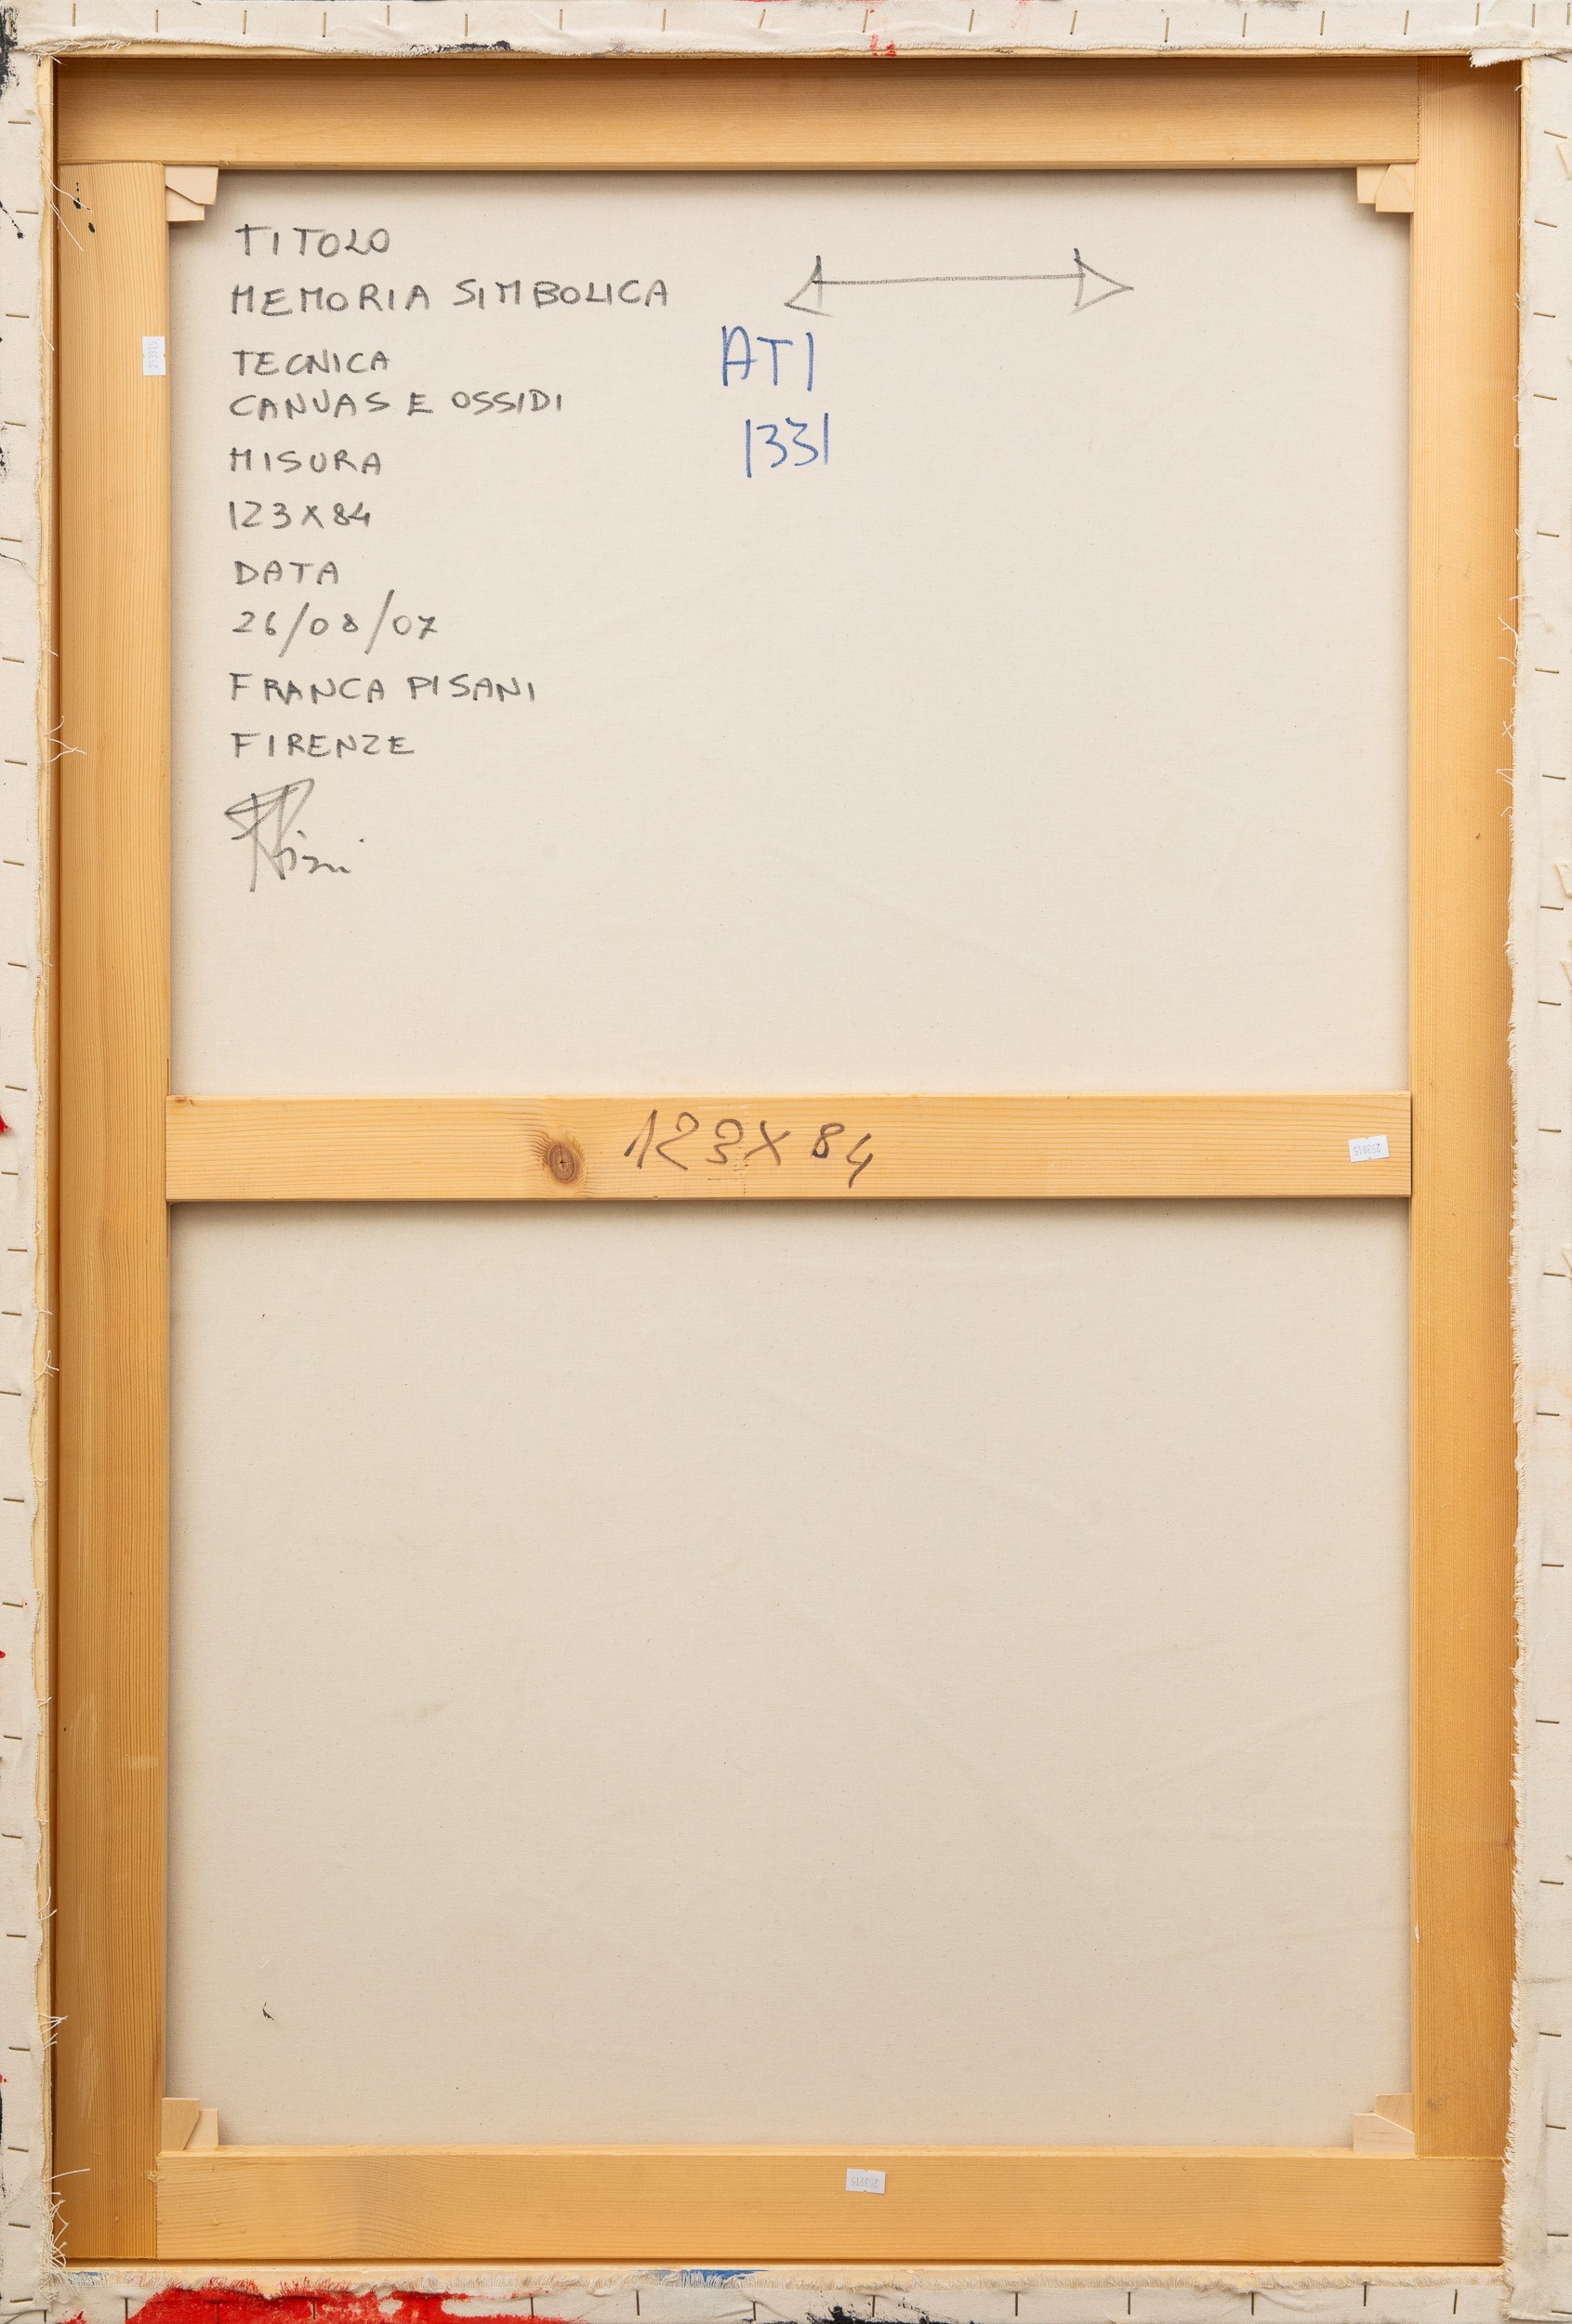 TITOLO
MEMORIA SIMBOLICA
TECNICA
CANVAS E OSSIDI
MISURA
123X84
DATA
26/08/07
FRANCA PISANI
FIRENZE
ATI
1331
123X84
253915
253915
253915